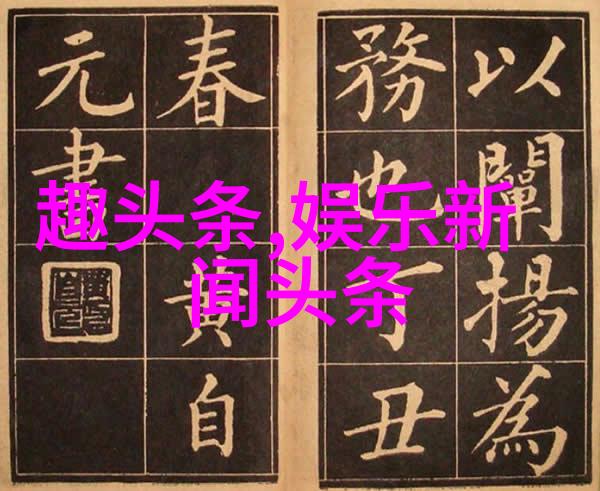 以闡揚為
務也丁丑
春黃自
元書
趣头条,娱乐新
闻头条